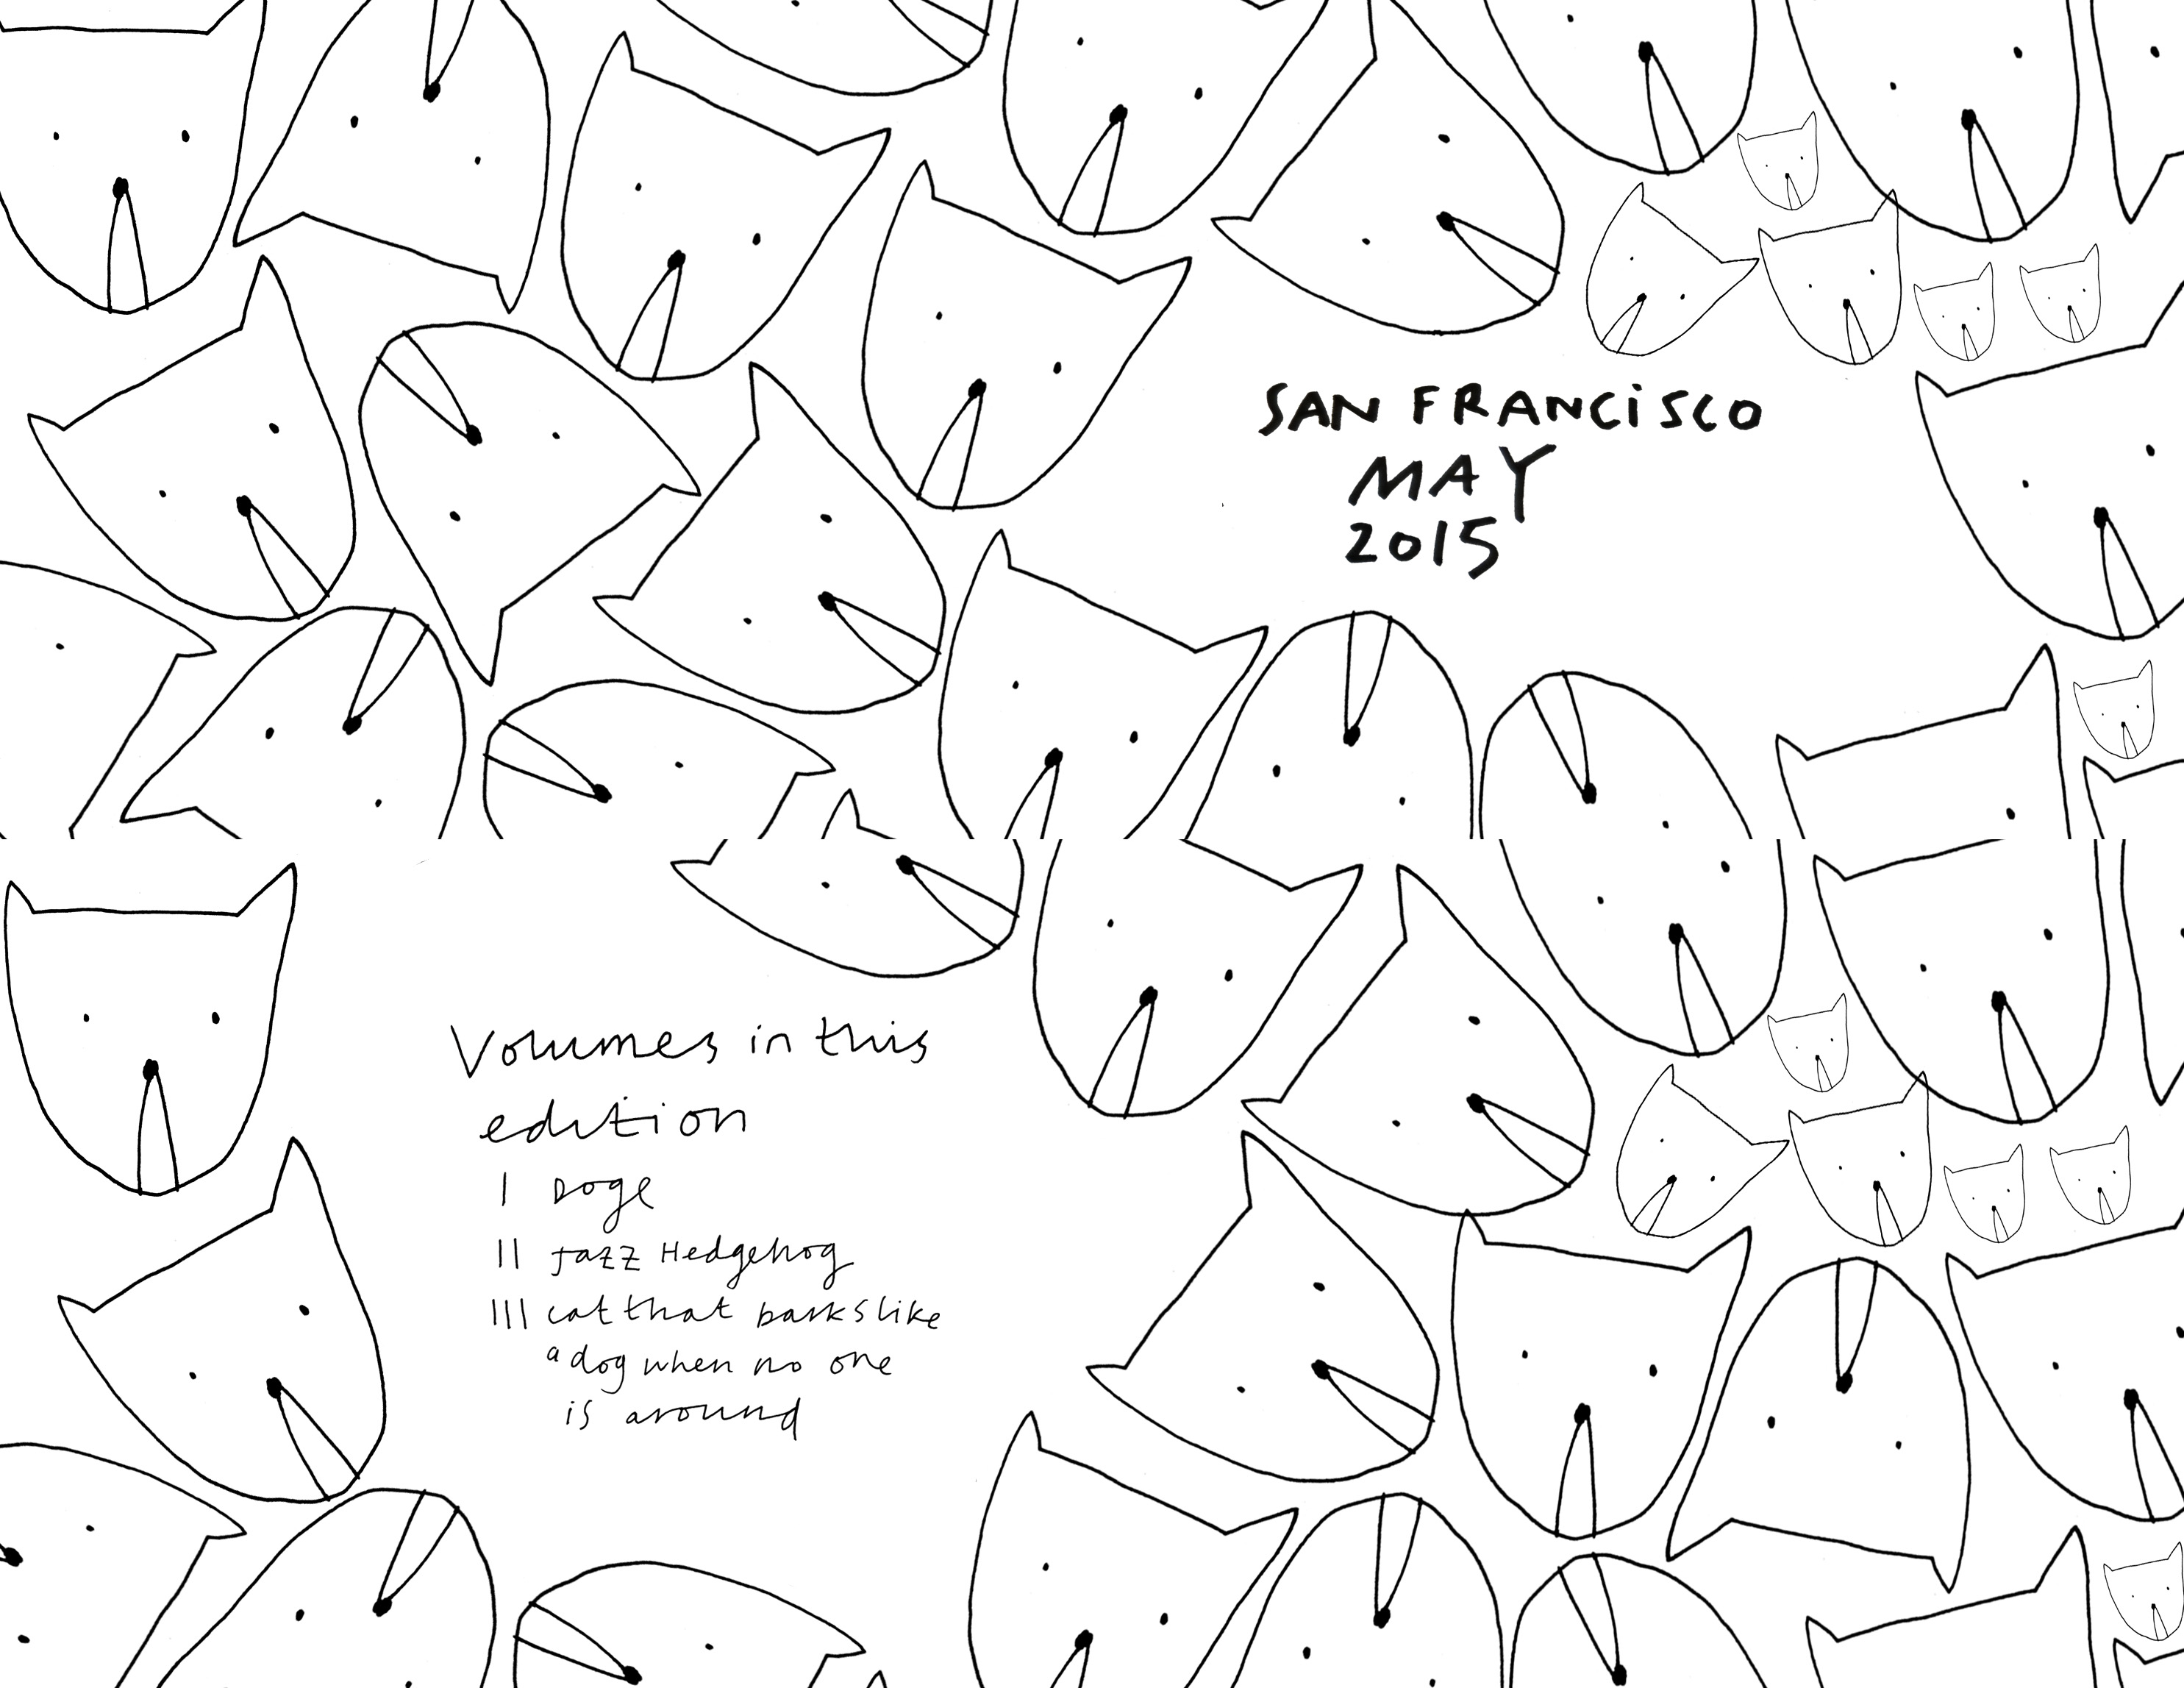 SAN FRANCISCO
MAY
2015
Volumes in this
edition
I Doge
II Jazz Hedgehog
III cat that barks like
a dog when no one
is around